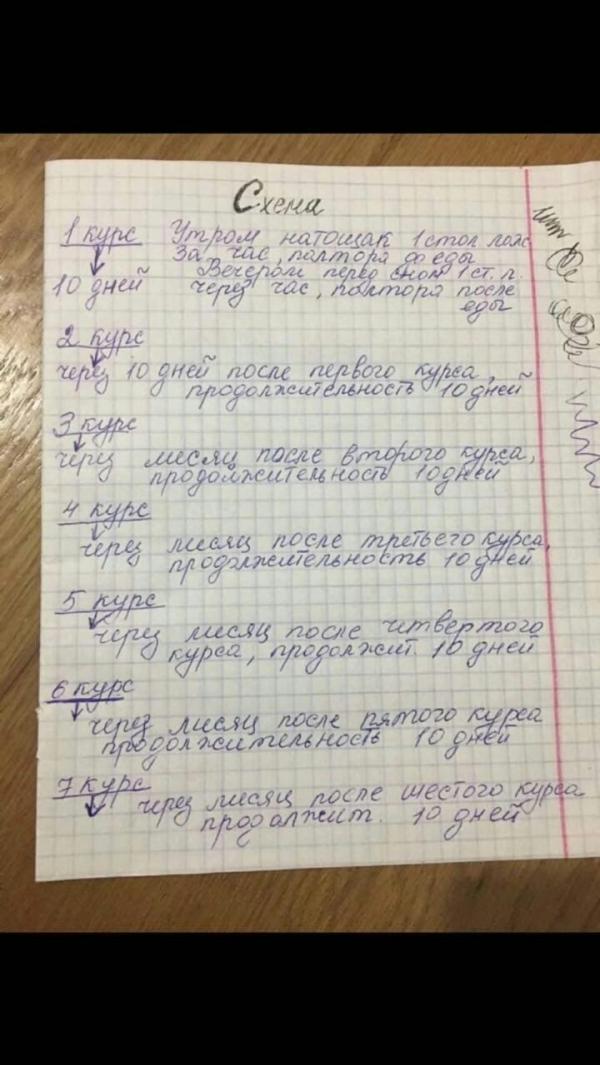 Схема
1 курс Утром натощак 1 стол лож.
За час, полтора до еды
Вечером перед сном 1 ст. л.
10 дней через час, полтора после
еды
2 курс
через 10 дней после первого курса,
продолжительность 10 дней
3 курс
через месяц после второго курса,
продолжительность 10 дней
4 курс
через месяц после третьего курса,
продолжительность 10 дней
5 курс
через месяц после четвертого
курса, продолжит. 10 дней
6 курс
через месяц после пятого курса
продолжительность 10 дней
7 курс
через месяц после шестого курса
продолжит. 10 дней